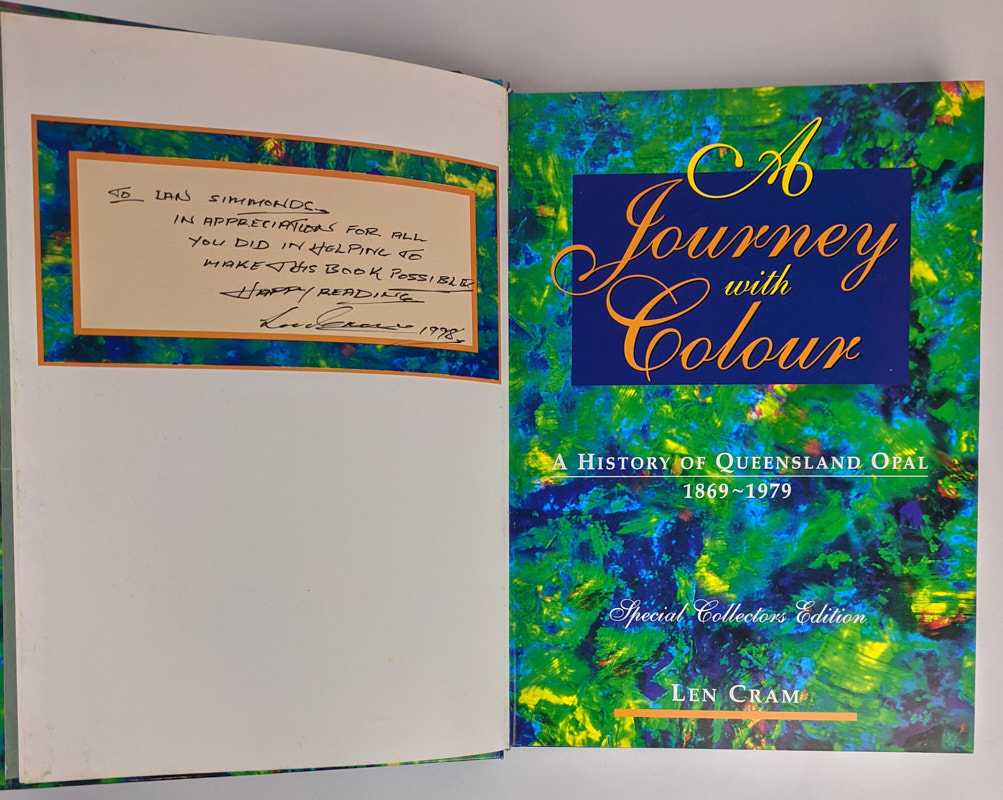 TO IAN SIMMONDS
IN APPRECIATION FOR ALL
YOU DID IN HELPING TO
MAKE THIS BOOK POSSIBLE
HAPPY READING
Len Cram 1998
A
Journey
with
Colour
A HISTORY OF QUEENSLAND OPAL
1869~1979
Special Collectors Edition
LEN CRAM